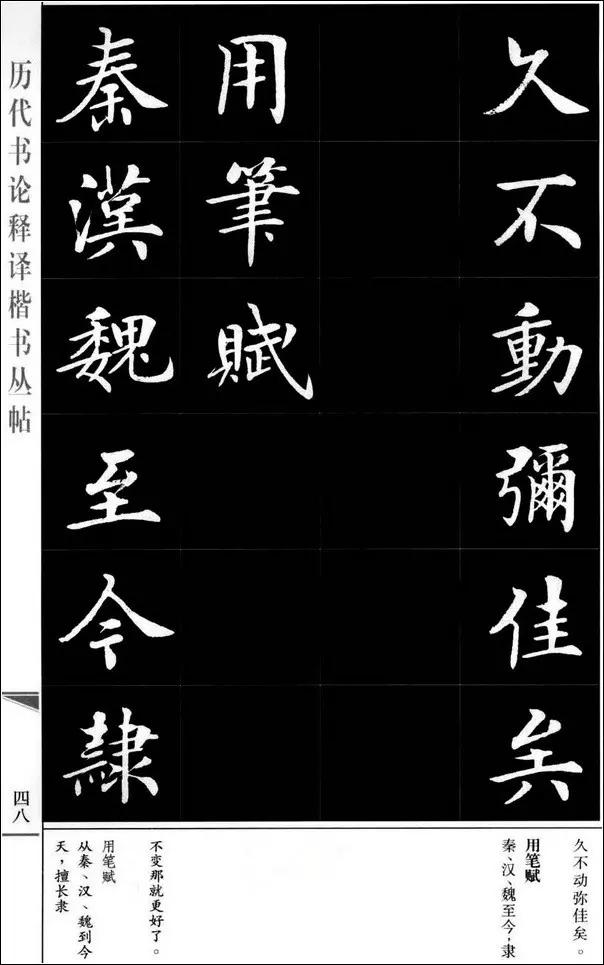 久不動彌佳矣
用筆賦
秦漢魏至今隸
久不动弥佳矣。
用笔赋
秦、汉、魏至今，隶
不变那就更好了。
用笔赋
从秦、汉、魏到今
天，擅长隶
历代书论释译楷书丛帖
四八